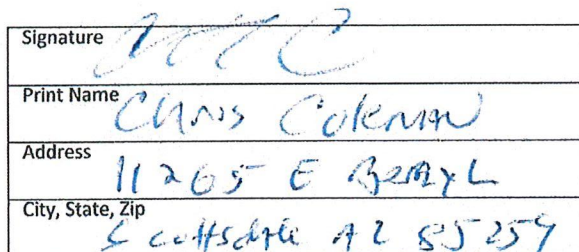 Signature
Print Name Chris Coleman
Address 11265 E Beryl
City, State, Zip Scottsdale AZ 85259